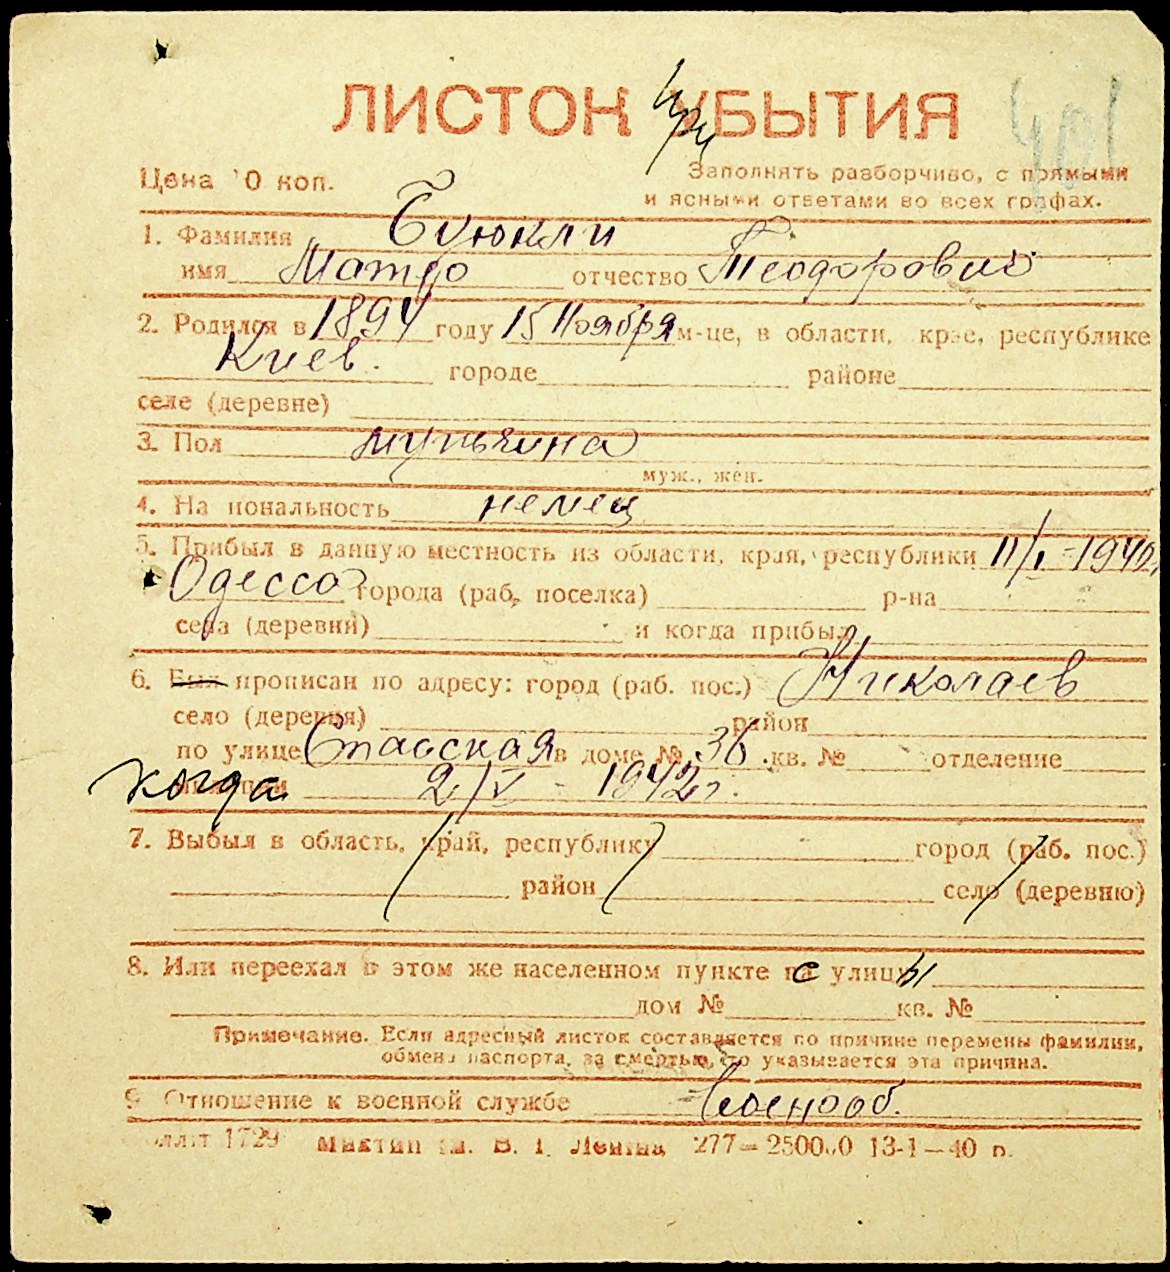 ЛИСТОК УБЫТИЯ
при
Цена 10 коп.
Заполнять разборчиво, с прямыми
и ясными ответами во всех графах.
1. Фамилия Буюкли
имя Матео отчество Теодорович
2. Родился в 1894 году 15 Ноября м-це, в области, крае, республике
Киев. городе районе
селе (деревне)
3. Пол мужчина
муж., жен.
4. Национальность немец
5. Прибыл в данную местность из области, края, республики 11/I-1942
Одесса города (раб. поселка) р-на
села (деревни) и когда прибыл
6. Был прописан по адресу: город (раб. пос.) Николаев
село (деревня) район
по улице Спасская в доме № 36 кв. № отделение
когда 2/V - 1942 г.
7. Выбыл в область, край, республику город (раб. пос.)
район село (деревню)
8. Или переехал в этом же населенном пункте с улицы
дом № кв. №
Примечание. Если адресный листок составляется по причине перемены фамилии,
обмена паспорта, за смертью, то указывается эта причина.
9. Отношение к военной службе Военнооб.
1729 им. В. І. Леніна 277—250000 13-1—40 р.